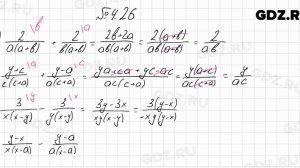 № 426
GDZ.RU
2/(a(a+b)) + 2/(b(a+b)) = (2b+2a)/(ab(a+b)) = (2(a+b))/(ab(a+b)) = 2/(ab)
(y+c)/(c(c+a)) + (y-a)/(a(c+a)) = (ya+ca+yc-ac)/(ac(c+a)) = (y(a+c))/(ac(c+a)) = y/(ac)
3/(x(x-y)) - 3/(y(x-y)) = (3y-3x)/(xy(x-y)) = (3(y-x))/(-xy(y-x))
(y-x)/(x(x-a)) - (y-a)/(a(x-a))